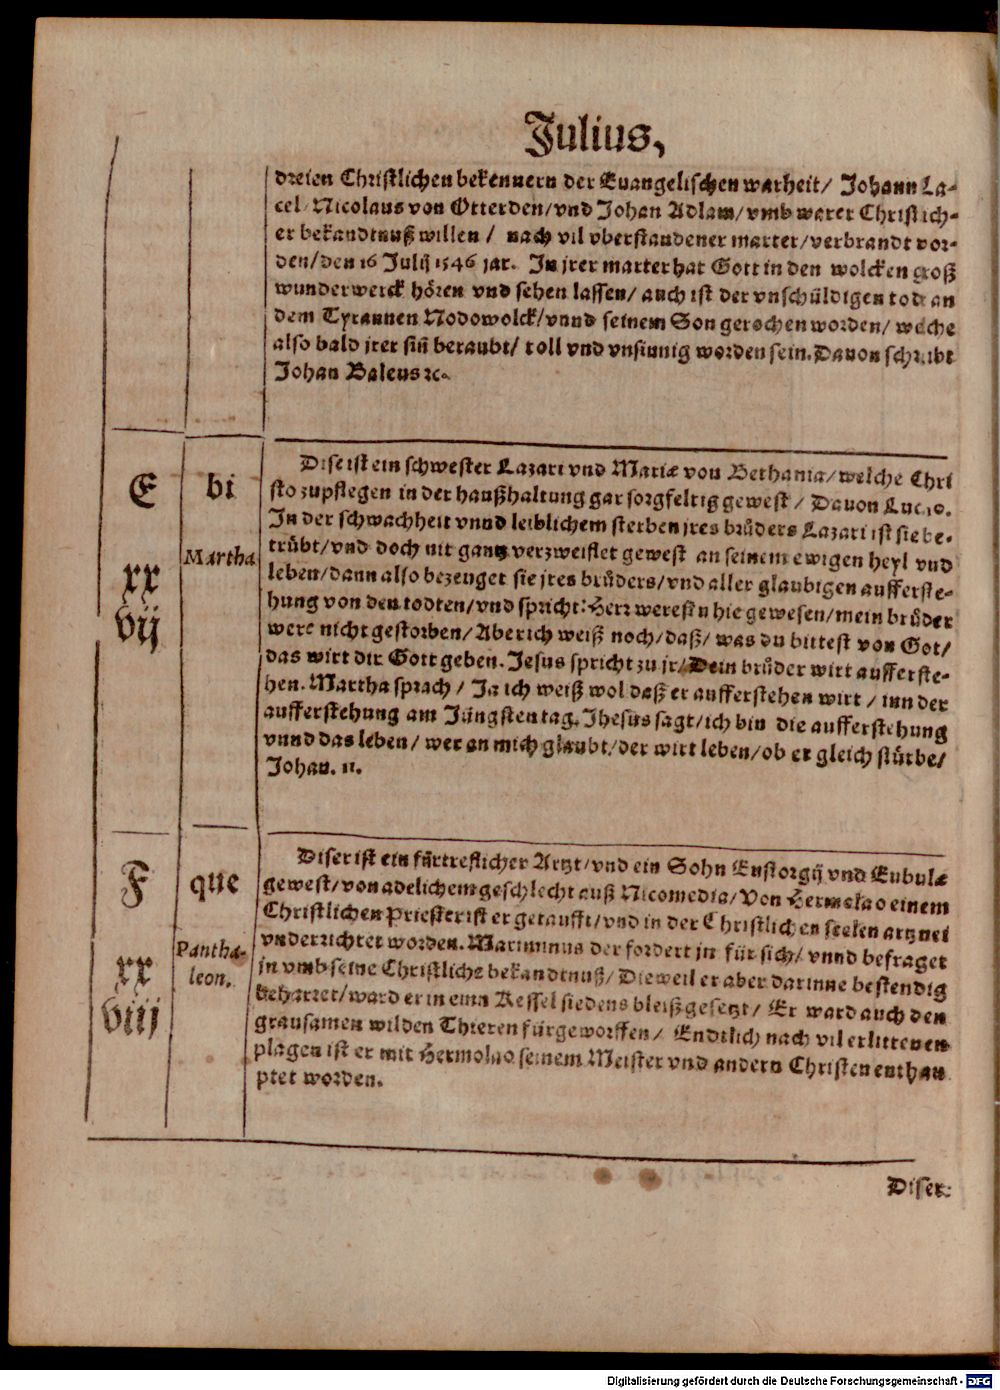 Julius,
dreien Christlichen bekennern der Euangelischen warheit/ Johann La-
cel/ Nicolaus von Otterden/ vnd Johan Adlam/ vmb warer Christlich-
er bekandtnuß willen / nach vil vberstandener marter/ verbrandt wor-
den/ den 16 Julij 1546 jar. In jrer marter hat Gott in den wolcken groß
wunderwerck hören vnd sehen lassen/ auch ist der vnschüldigen tod an
dem Tyrannen Nodowolck/ vnnd seinem Son gerochen worden/ welche
also bald jrer siñ beraubt/ toll vnd vnsinnig worden sein. Dauon schreibt
Johan Baleus ꝛc.
E
bi
xx
vij
Martha
Dise ist ein schwester Lazari vnd Mariæ von Bethania/ welche Chri
sto zupflegen in der haußhaltung gar sorgfeltig gewest / Dauon Luc. 10.
In der schwachheit vnnd leiblichem sterben jres brůders Lazari ist sie be-
trůbt/ vnd doch nit gantz verzweiflet gewest an seinem ewigen heyl vnd
leben/ dann also bezeuget sie jres brůders/ vnd aller glaubigen aufferste-
hung von den todten/ vnd spricht: Herr werestu hie gewesen/ mein brůder
were nicht gestorben/ Aber ich weiß noch/ daß/ was du bittest von Got/
das wirt dir Gott geben. Jesus spricht zu jr/ Dein brůder wirt aufferste-
hen. Martha sprach / Ja ich weiß wol daß er aufferstehen wirt / inn der
aufferstehung am Jüngsten tag. Jhesus sagt/ ich bin die aufferstehung
vnnd das leben/ wer an mich glaubt/ der wirt leben/ ob er gleich stürbe/
Johan. 11.
F
que
xx
viij
Pantha-
leon.
Diser ist ein fürtreflicher Artzt/ vnd ein Sohn Eustorgij vnd Eubulæ
gewest/ von adelichem geschlecht auß Nicomedia/ Von Hermolao einem
Christlichen Priester ist er getaufft/ vnd in der Christlichen seelen artznei
vnderrichtet worden. Maximinus der fordert jn für sich/ vnnd befraget
jn vmb seine Christliche bekandtnuß/ Dieweil er aber darinne bestendig
beharret/ ward er in einn Kessel siedens bleiß gesetzt/ Er ward auch den
grausamen wilden Thieren fürgeworffen/ Endtlich nach vil erlittenen
plagen ist er mit Hermolao seinem Meister vnd andern Christen enthau
ptet worden.
Diser
Digitalisierung gefördert durch die Deutsche Forschungsgemeinschaft - DFG